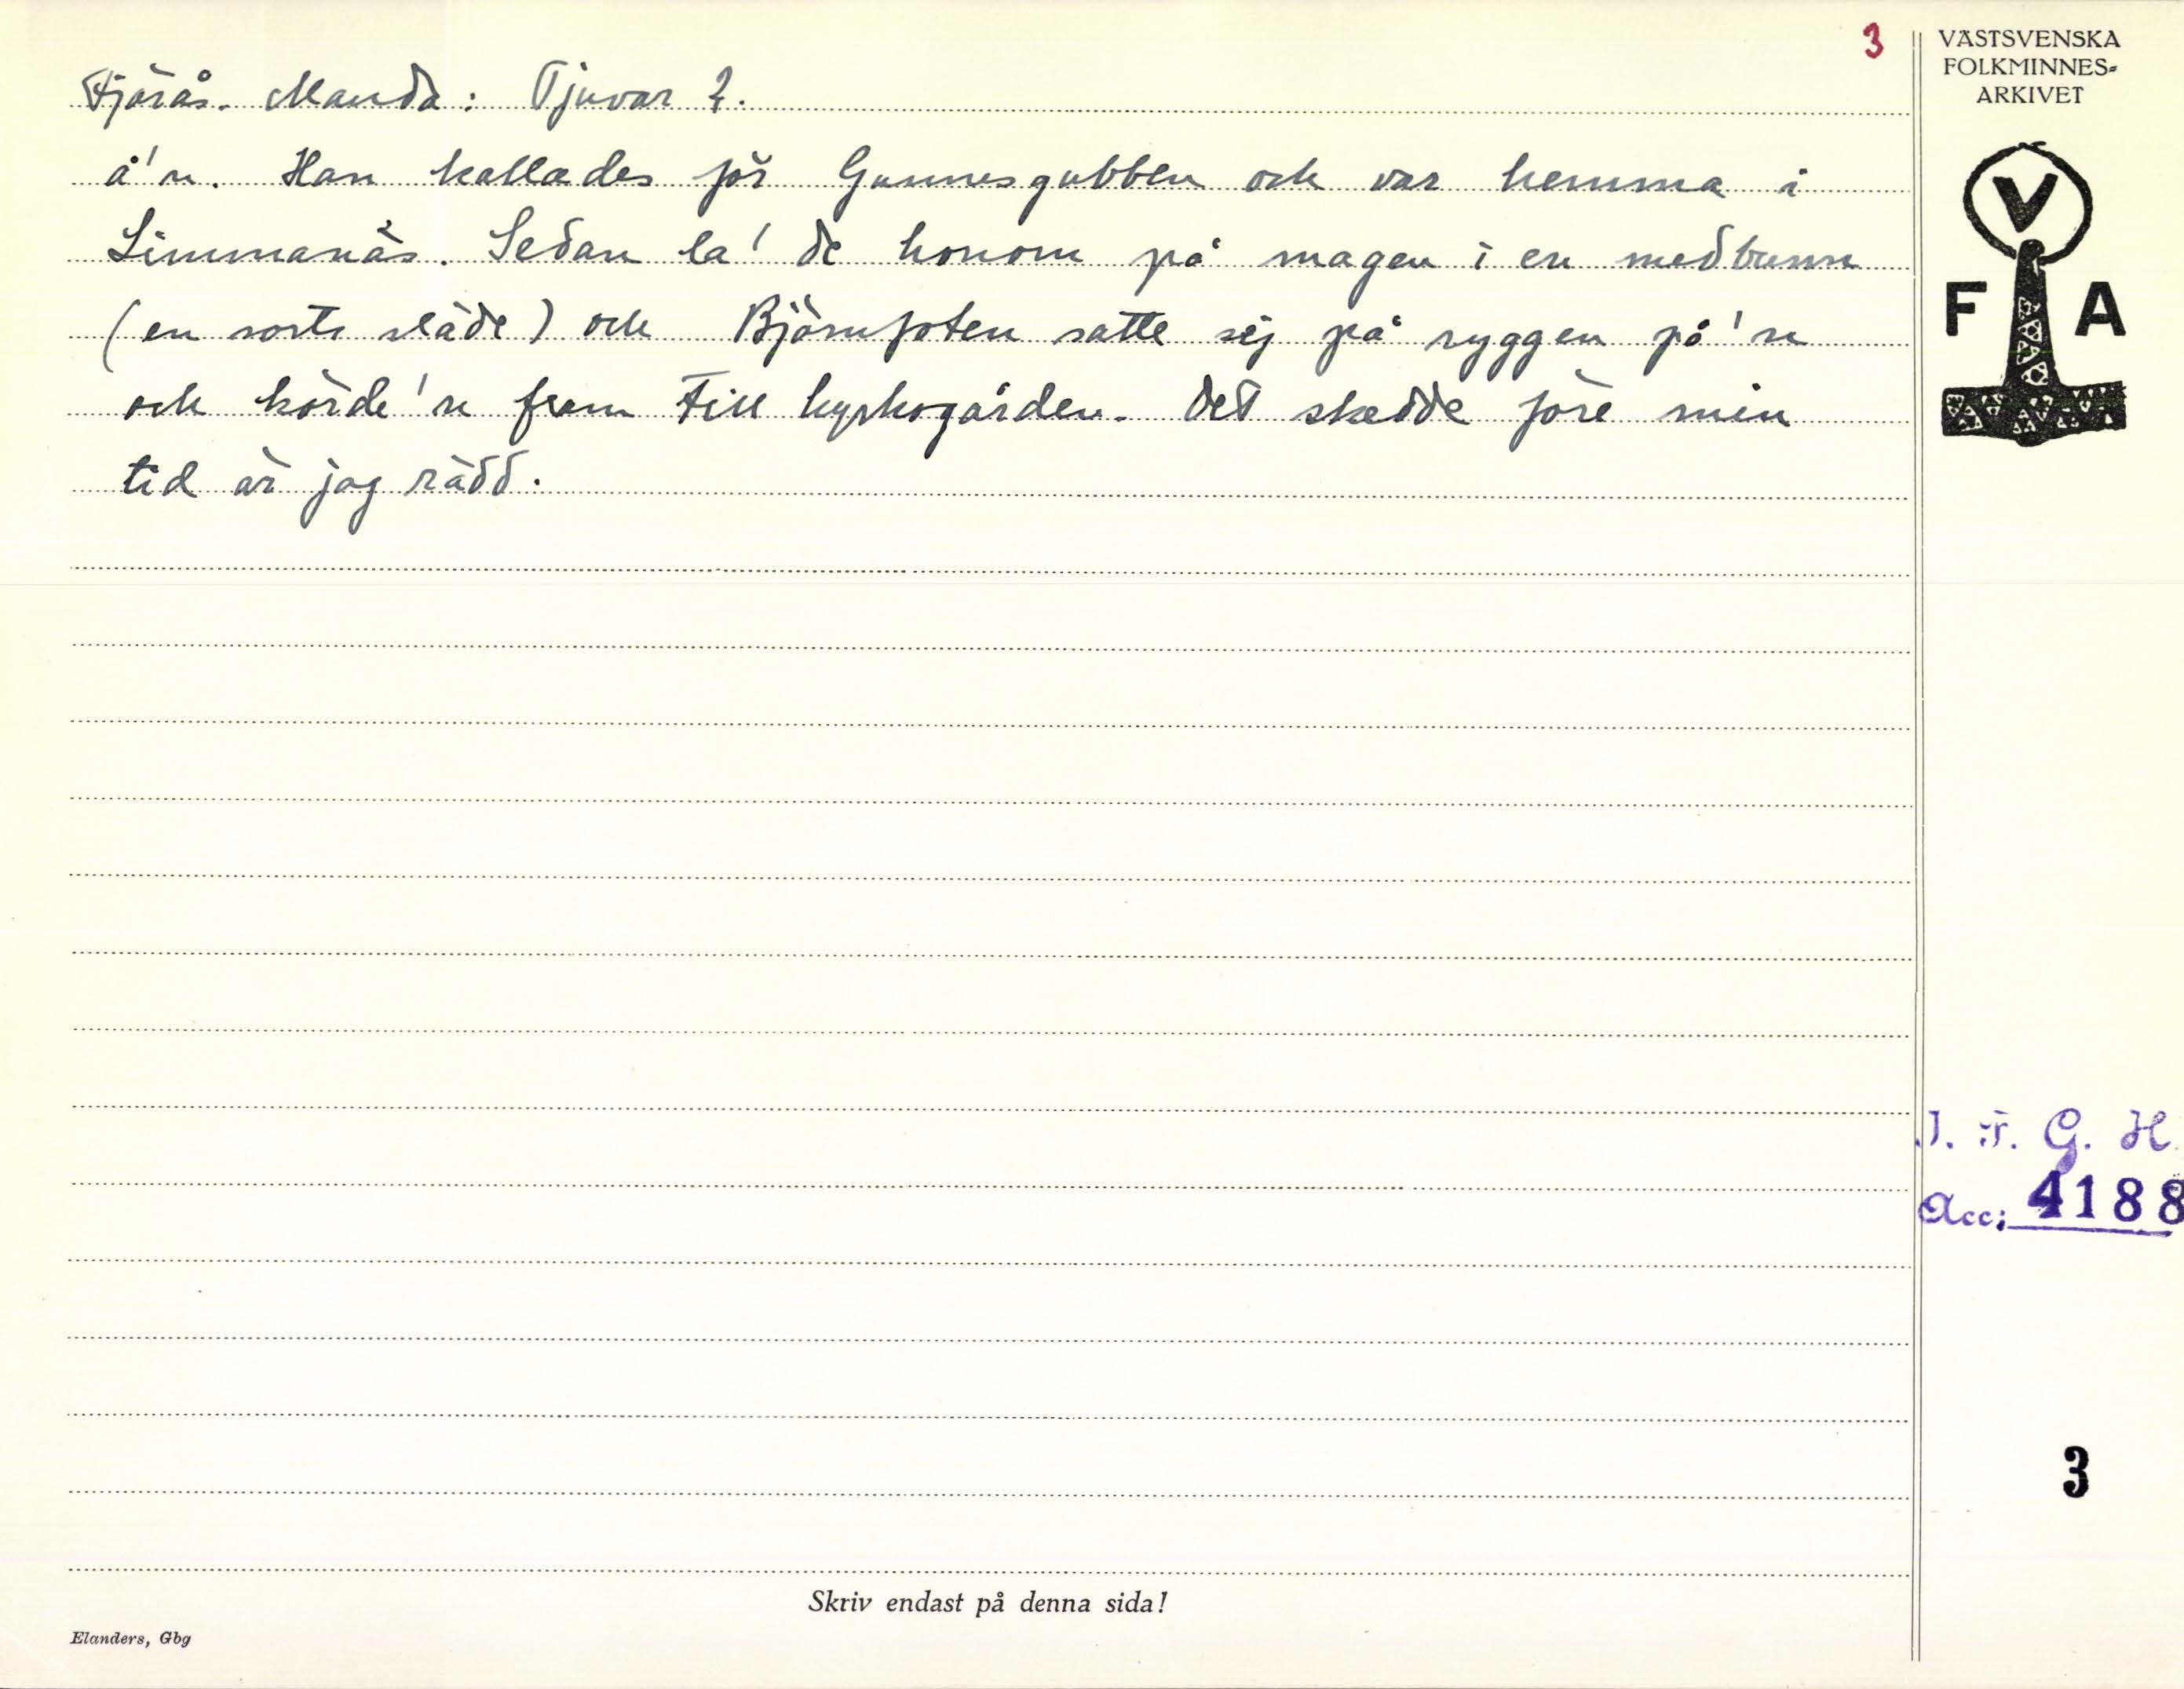 3
VÄSTSVENSKA
FOLKMINNES-
ARKIVET
Fjärås. Manda: Tjuvar 2.
å'n. Han kallades för Gunnesgubben och var hemma i
Limmanäs. Sedan la' de honom på magen i en medbunn
(en sorts släde) och Björnfoten satte sej på ryggen på'n
och körde'n fram till kyrkogården. Det skedde före min
tid är jag rädd.
V
F A
I. F. G. H.
Acc: 4188
3
Skriv endast på denna sida!
Elanders, Gbg